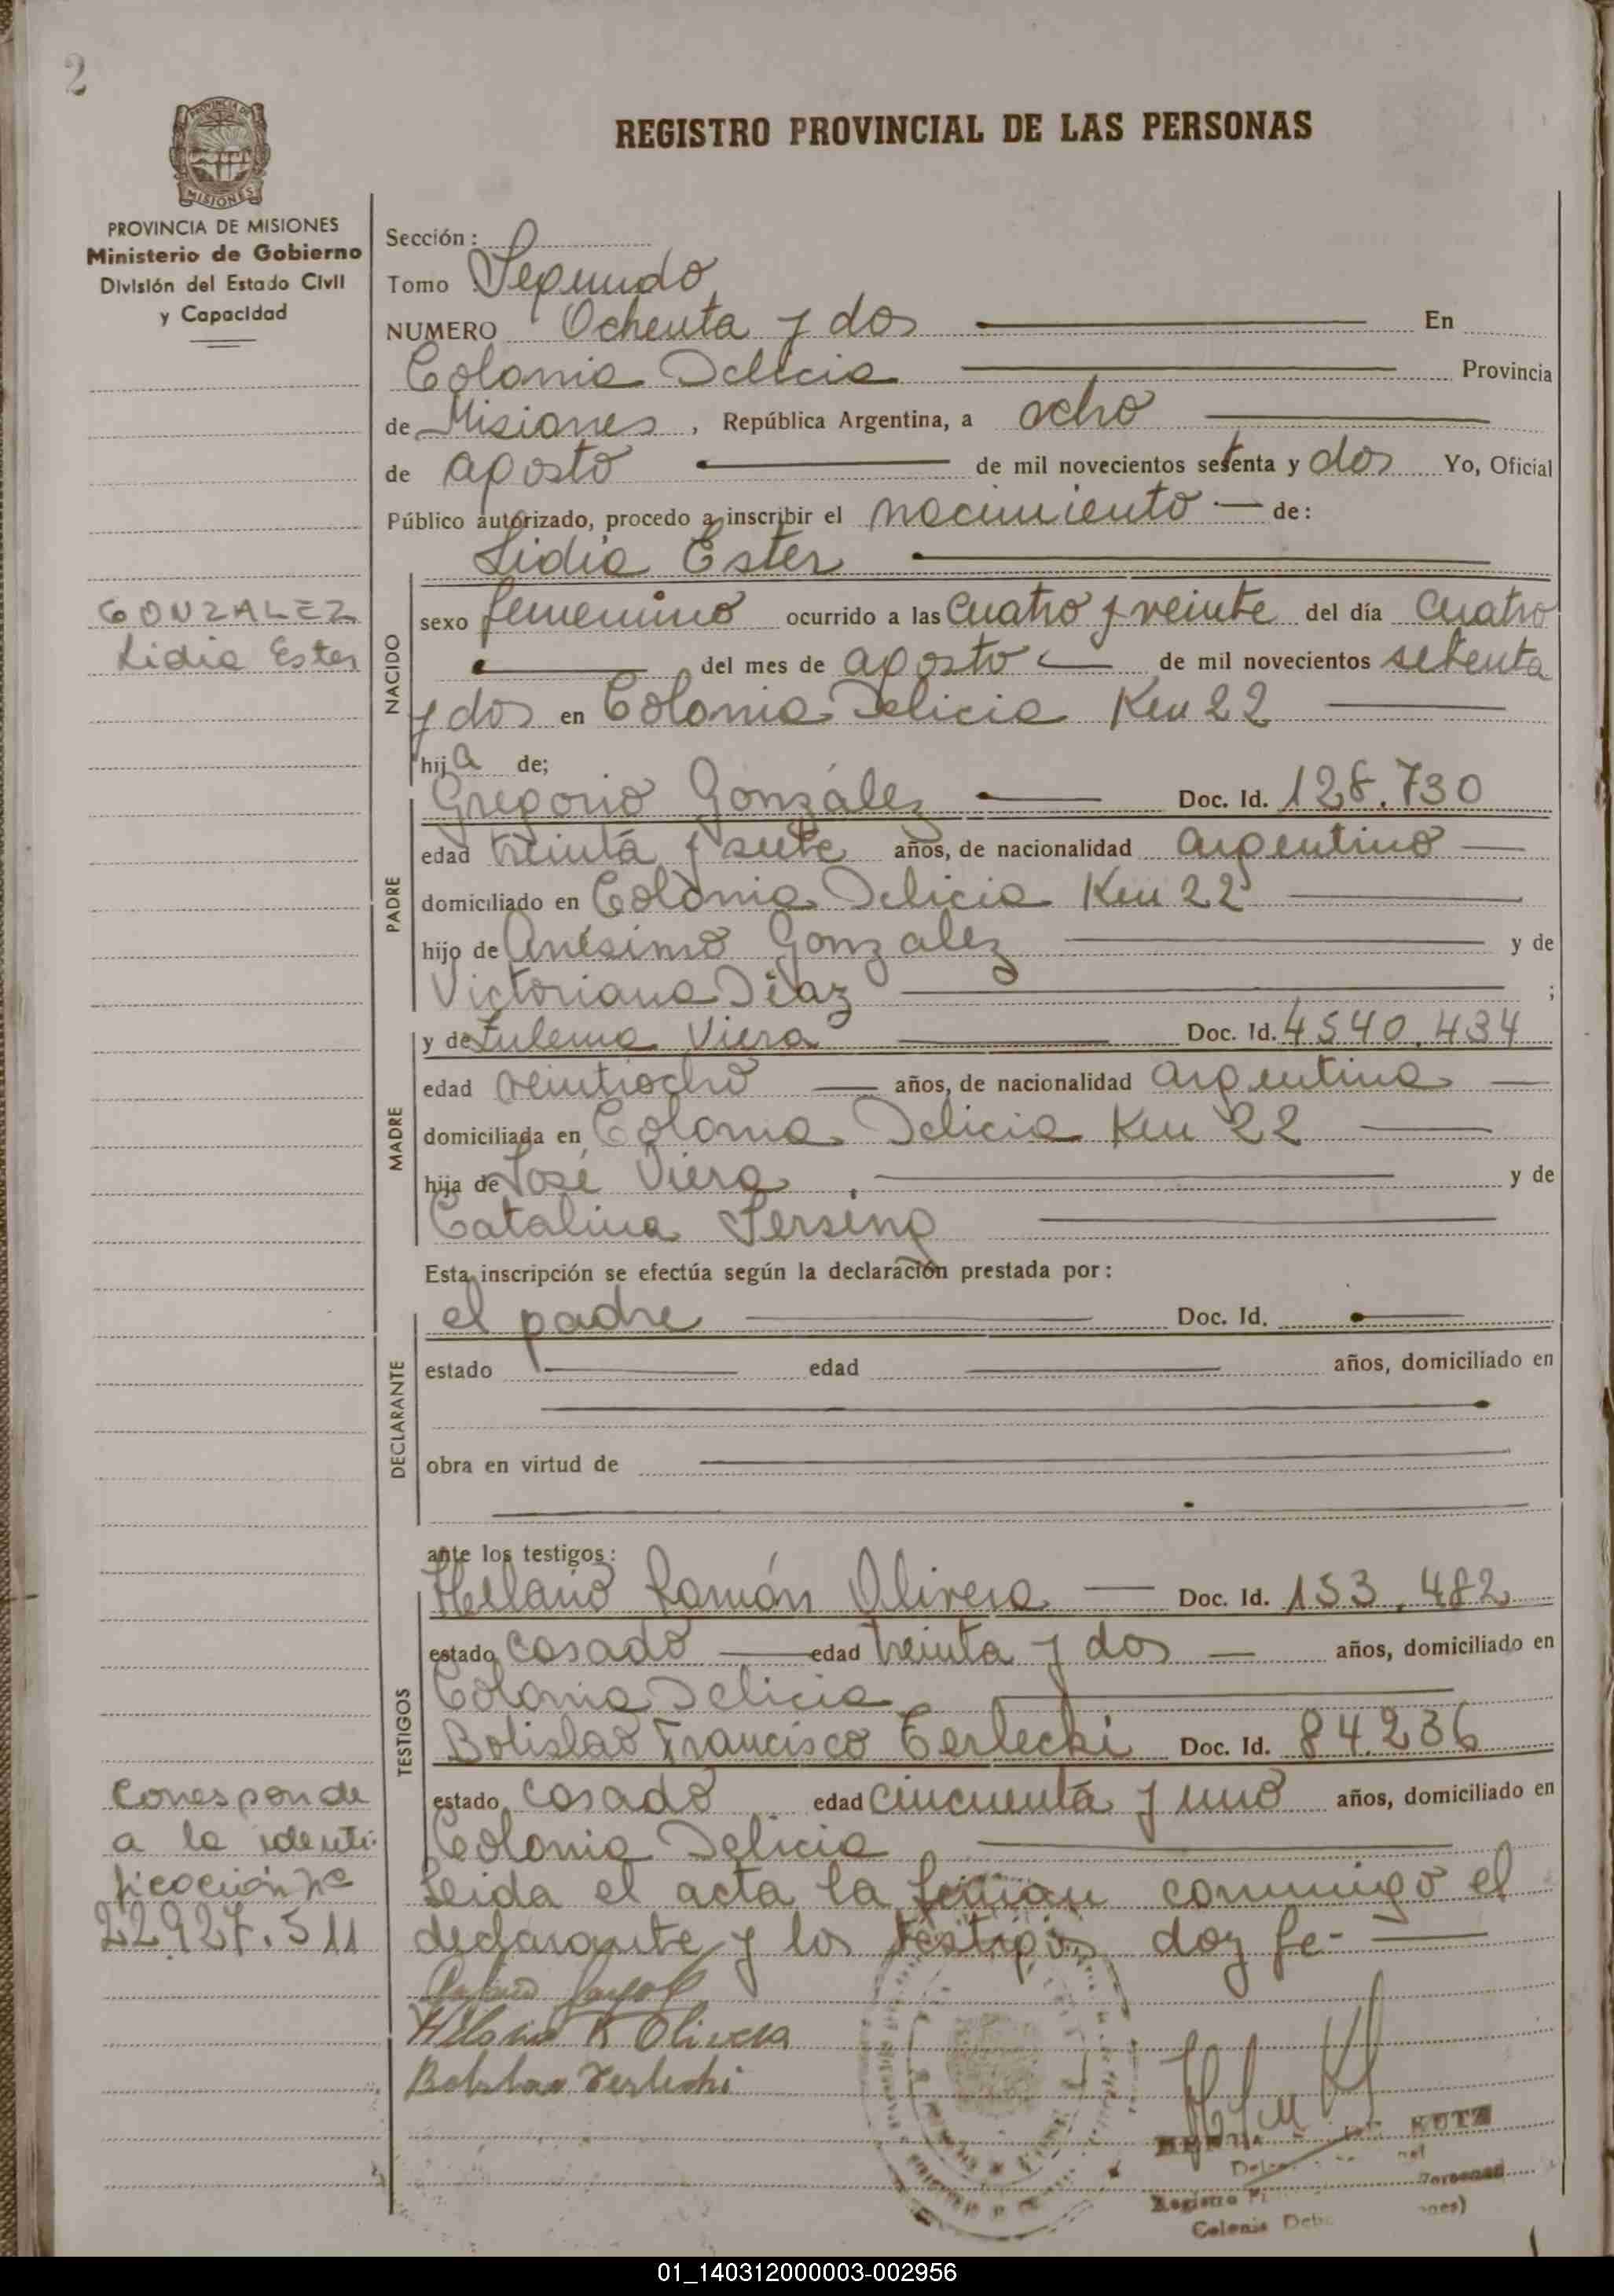 2
PROVINCIA DE
MISIONES
REGISTRO PROVINCIAL DE LAS PERSONAS
PROVINCIA DE MISIONES
Ministerio de Gobierno
División del Estado Civil
y Capacidad
Sección:
Tomo Segundo
NUMERO Ochenta y dos En
Colonia Delicia Provincia
de Misiones, República Argentina, a ocho
de agosto de mil novecientos setenta y dos Yo, Oficial
Público autorizado, procedo a inscribir el nacimiento de:
Lidia Ester
GONZALEZ
Lidia Ester
NACIDO
sexo femenino ocurrido a las cuatro y veinte del día cuatro
del mes de agosto de mil novecientos setenta
y dos en Colonia Delicia Km 22
hija de;
PADRE
Gregorio González Doc. Id. 128.730
edad treinta y siete años, de nacionalidad argentino
domiciliado en Colonia Delicia Km 22
hijo de Anésimo Gonzalez y de
Victoriana Díaz ;
MADRE
y de Zulema Viera Doc. Id. 4540.434
edad veintiocho años, de nacionalidad argentina
domiciliada en Colonia Delicia Km 22
hija de José Viera, y de
Catalina
Esta inscripción se efectúa según la declaración prestada por:
DECLARANTE
el padre Doc. Id.
estado edad años, domiciliado en
obra en virtud de
ante los testigos:
TESTIGOS
Ramón Olivera Doc. Id. 153.482
estado casado edad treinta y dos años, domiciliado en
Colonia Delicia
Bolislao Francisco Terlecki Doc. Id. 84.236
estado casado edad cincuenta y uno años, domiciliado en
Colonia Delicia
Corresponde
a la identi
ficación nº
22.927.511
Leida el acta la firman conmigo el
declarante y los testigos doy fe-
R Olivera
Terlecki
KUTZ
Registro
Personas
Colonia
01_140312000003-002956